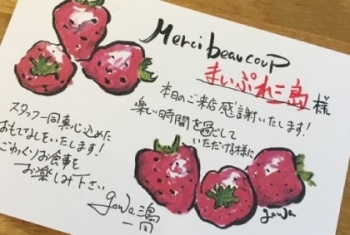 Merci beaucoup
まいぷれ三島 様
本日のご来店感謝いたします!
楽しい時間を過ごして
いただけ様に
スタッフ一同真心込めた
おもてなしをいたします!
ごゆっくりお食事を
お楽しみ下さい
gawa三島
一同
gawa